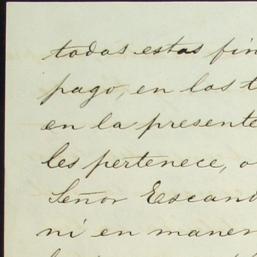 todas estas fin
pago, en los t
en la presente
les pertenece, o
Señor Escan
ni en maner